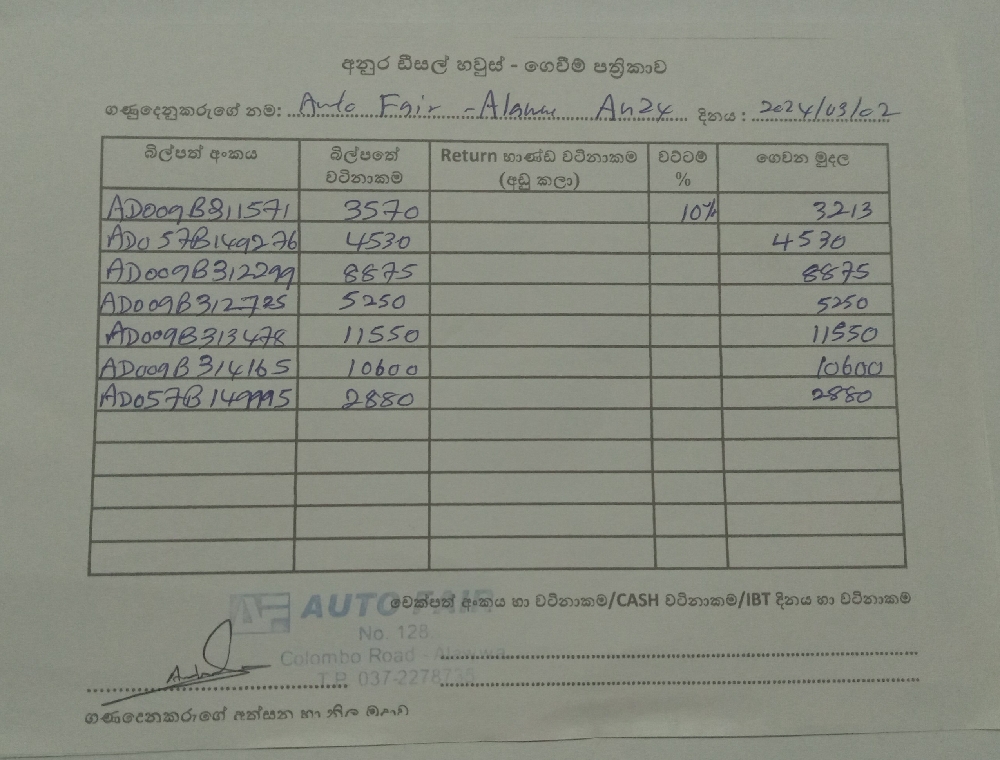 අනුර ඩීසල් හවුස් - ගෙවීම් පත්‍රිකාව
ගණුදෙනුකරුගේ නම: Auto Fair - Alawu An24 දිනය : 2024/03/02
බිල්පත් අංකය බිල්පතේ වටිනාකම Return භාණ්ඩ වටිනාකම (අඩු කලා) වට්ටම් % ගෙවන මුදල
AD009B311571 3570 10% 3213
AD057B149276 4530 4530
AD009B312299 8875 8875
AD009B312725 5250 5250
AD009B313478 11550 11550
AD009B314165 10600 10600
AD057B149995 2880 2880
AF AUTO FAIR
චෙක්පත් අංකය හා වටිනාකම/CASH වටිනාකම/IBT දිනය හා වටිනාකම
No. 128
Colombo Road - Alawwa
T.P. 037-2278735
ගණුදෙනුකරුගේ අත්සන හා නිල මුද්‍රාව